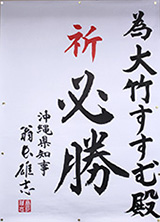 為大竹すすむ殿
祈
必勝
沖縄県知事
翁長雄志